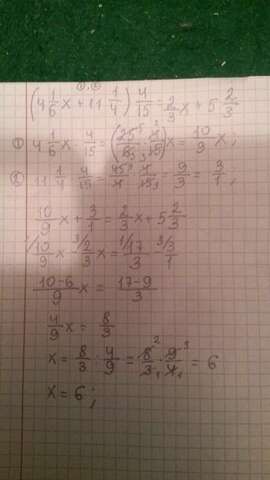 (4 1/6 x + 11 1/4) 4/15 = 2/3 x + 5 2/3
① 4 1/6 x · 4/15 = (25/6 · 4/15) x = 10/9 x;
② 11 1/4 · 4/15 = 45/4 · 4/15 = 9/3 = 3/1;
10/9 x + 3/1 = 2/3 x + 5 2/3
10/9 x - 2/3 x = 17/3 - 3/1
10-6/9 x = 17-9/3
4/9 x = 8/3
x = 8/3 · 4/9 = 8/3 · 9/4 = 6
x = 6;